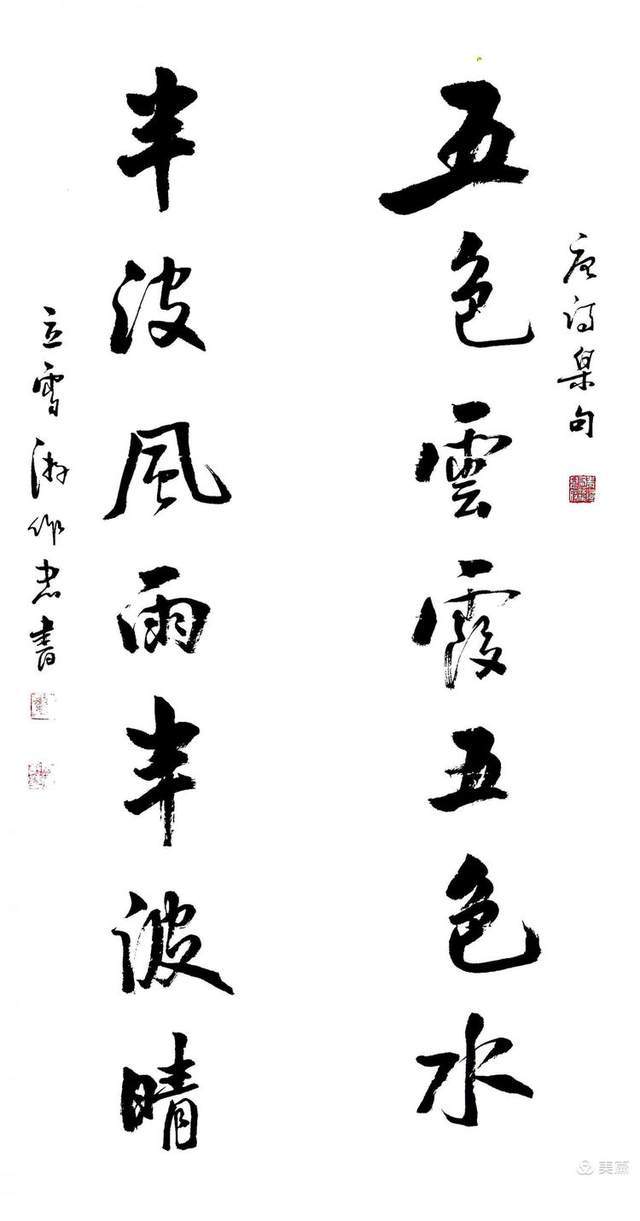 唐詩集句
五色雲霞五色水
半波風雨半波晴
立雪作忠書
美篇